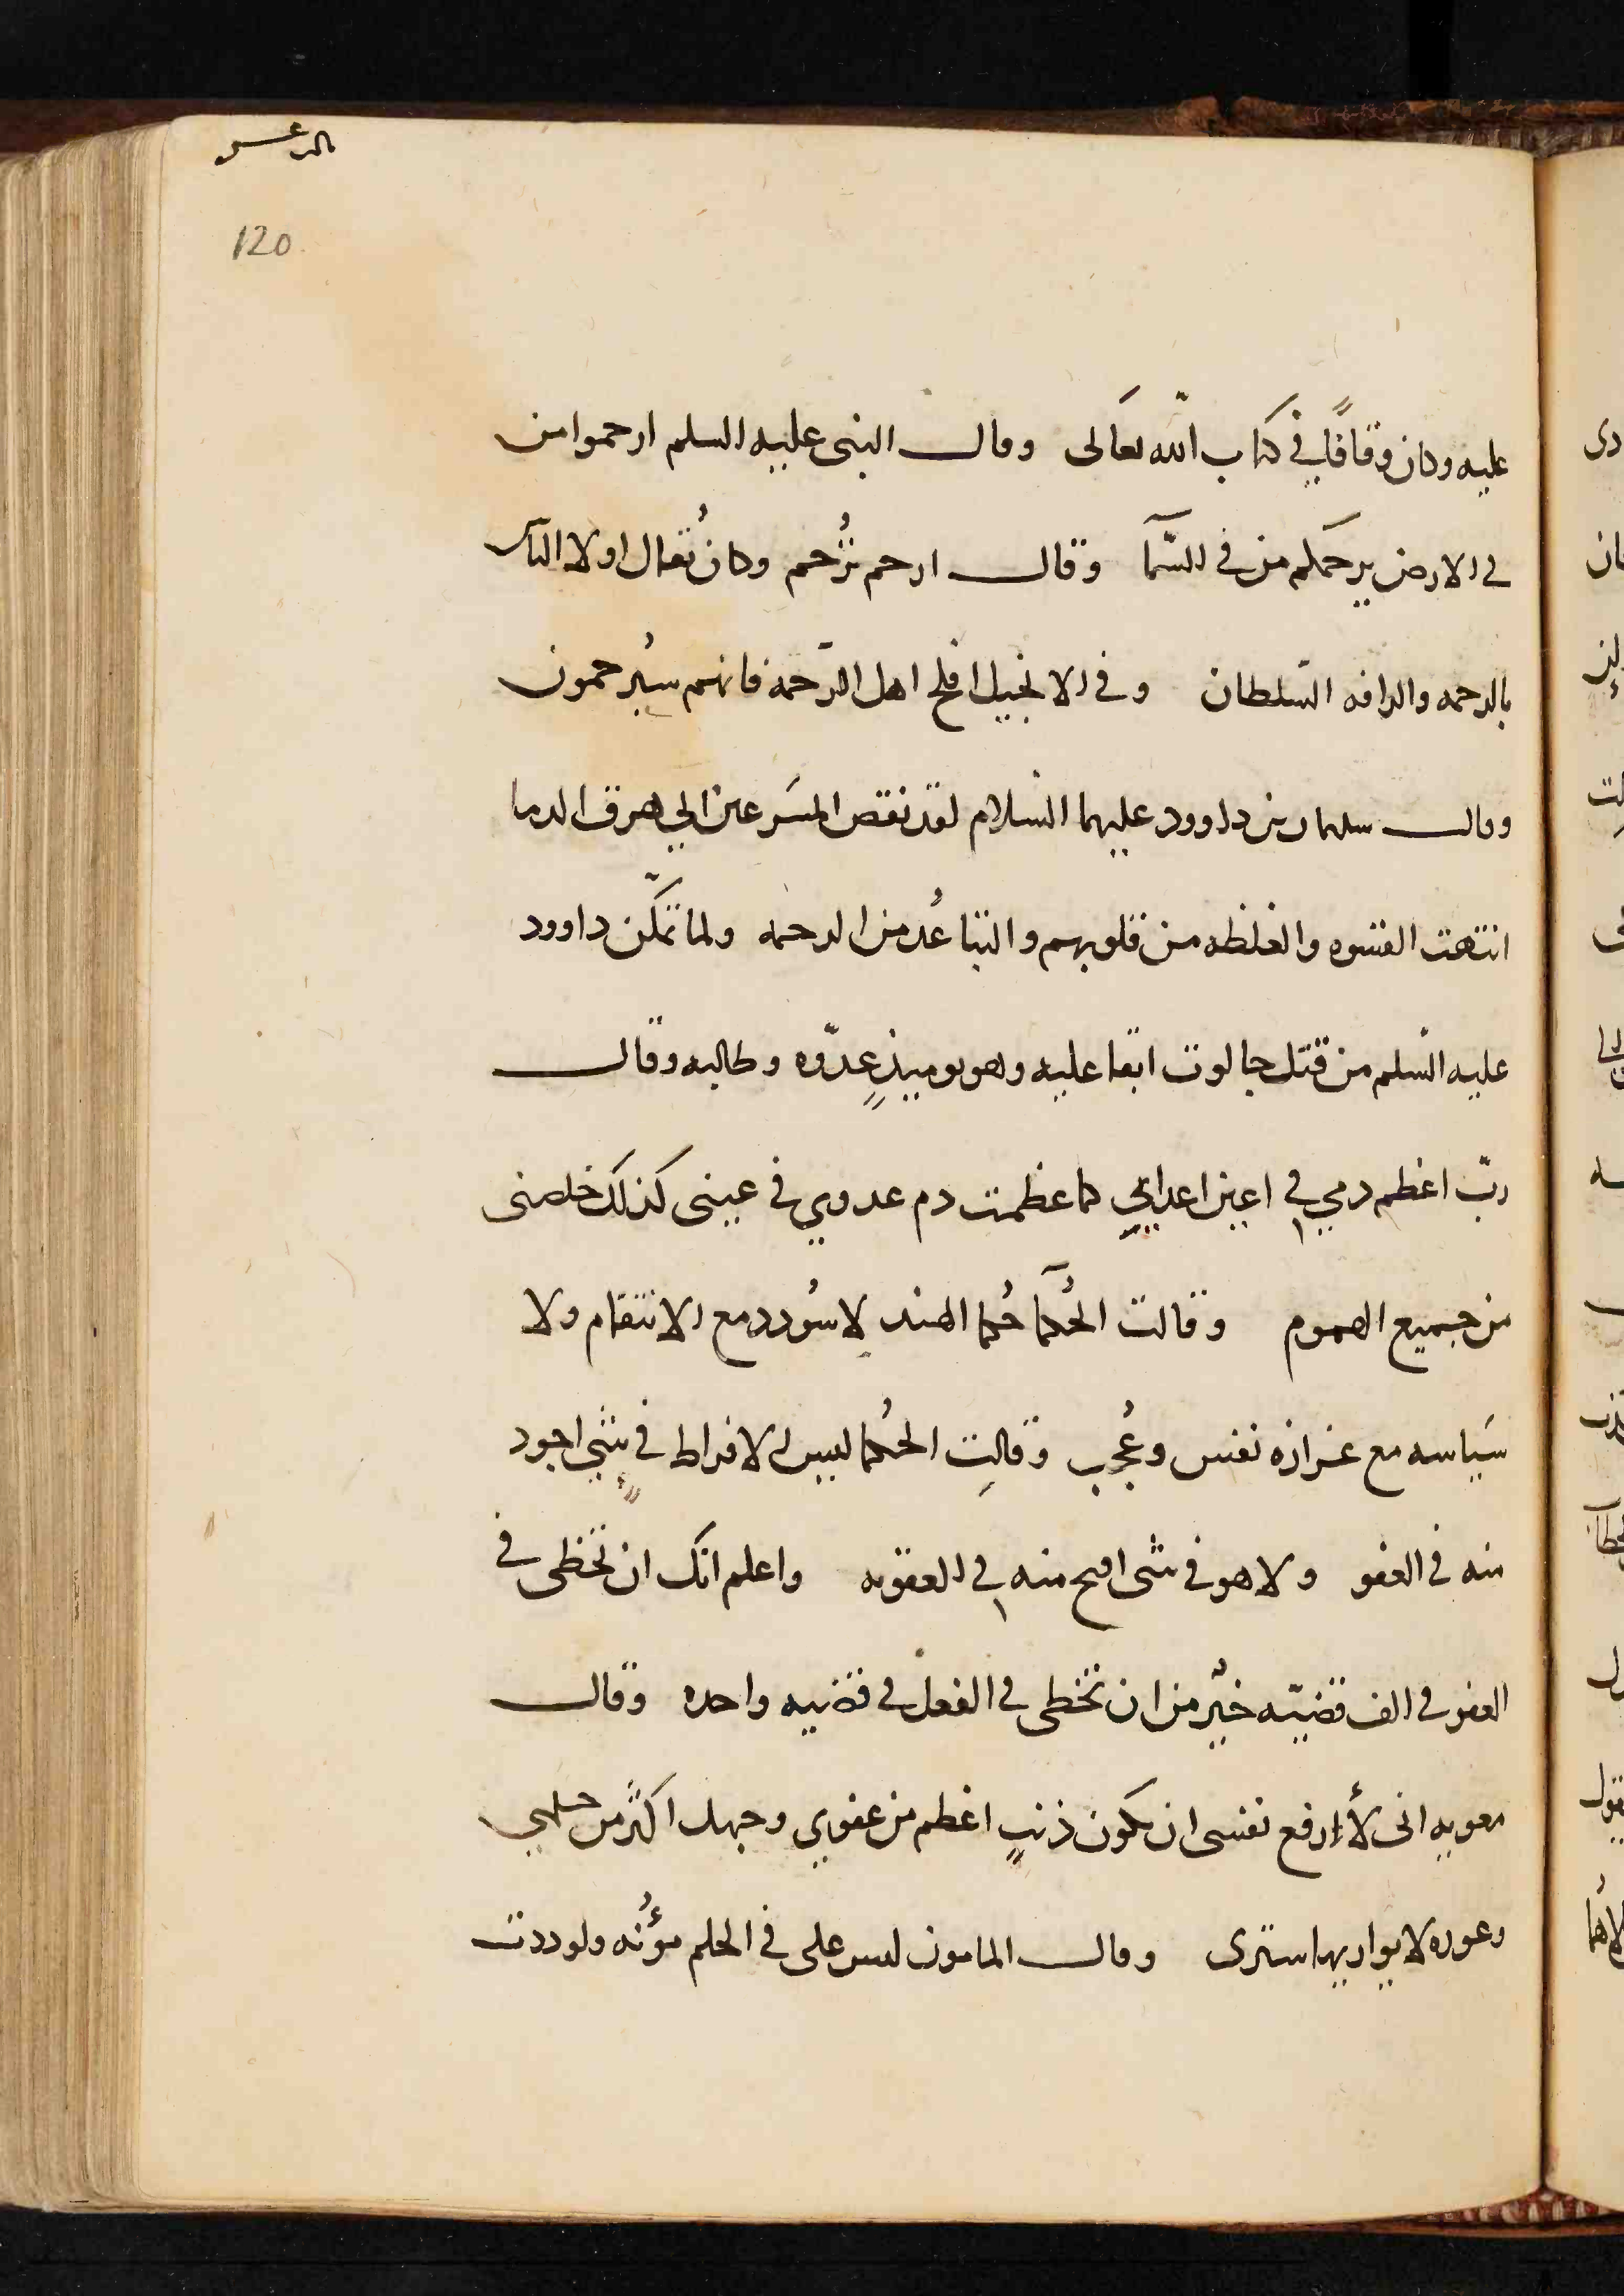 120
عليه وكان وقافًا في كتاب الله تعالى وقال النبى عليه السلم ارحموا من
في الارض يرحمكم من في السّمآ وقال ارحم تُرحم وكان يُقال اولا الناس
بالرحمه والرافه السّلطان وفي الانجيل افلح اهل الرّحمه فانهم سيُرحمون
وقال سليمان بن داوود عليهما السلام لقد نقص المسَرعين الي هرق الدما
انتهت القسوه والغلظه من قلوبهم والتباعُد من الرحمه ولما تمكّن داوود
عليه السّلم من قتل جالوت ابقا عليه وهو يوميذٍ عدّوه وطالبه وقال
ربّ اعظم دمي في اعين اعدايي كما عظمت دم عدوي في عينى كذلك خلصنى
من جميع الهموم وقالت الحُكمآ حُكما الهند لا سُودد مع الانتقام ولا
سَياسه مع عزازه نفس وعُجب وقالتِ الحُكما ليس الافراط في شيءٍ اجود
منه في العفو ولا هو في شى اقبح منه في العقوبه واعلم انك ان تخطى في
العفو في الف قضيّه خيرٌ من ان تخطى في الفعل في قضيه واحده وقال
معويه انى لأارفع نفسى ان يكون ذنبٍ اعظم من عفوي وجهل اكثر من حلمي
وعوره لا يواريها سترى وقال المامون ليس على في الحلم مؤُنه ولوددت